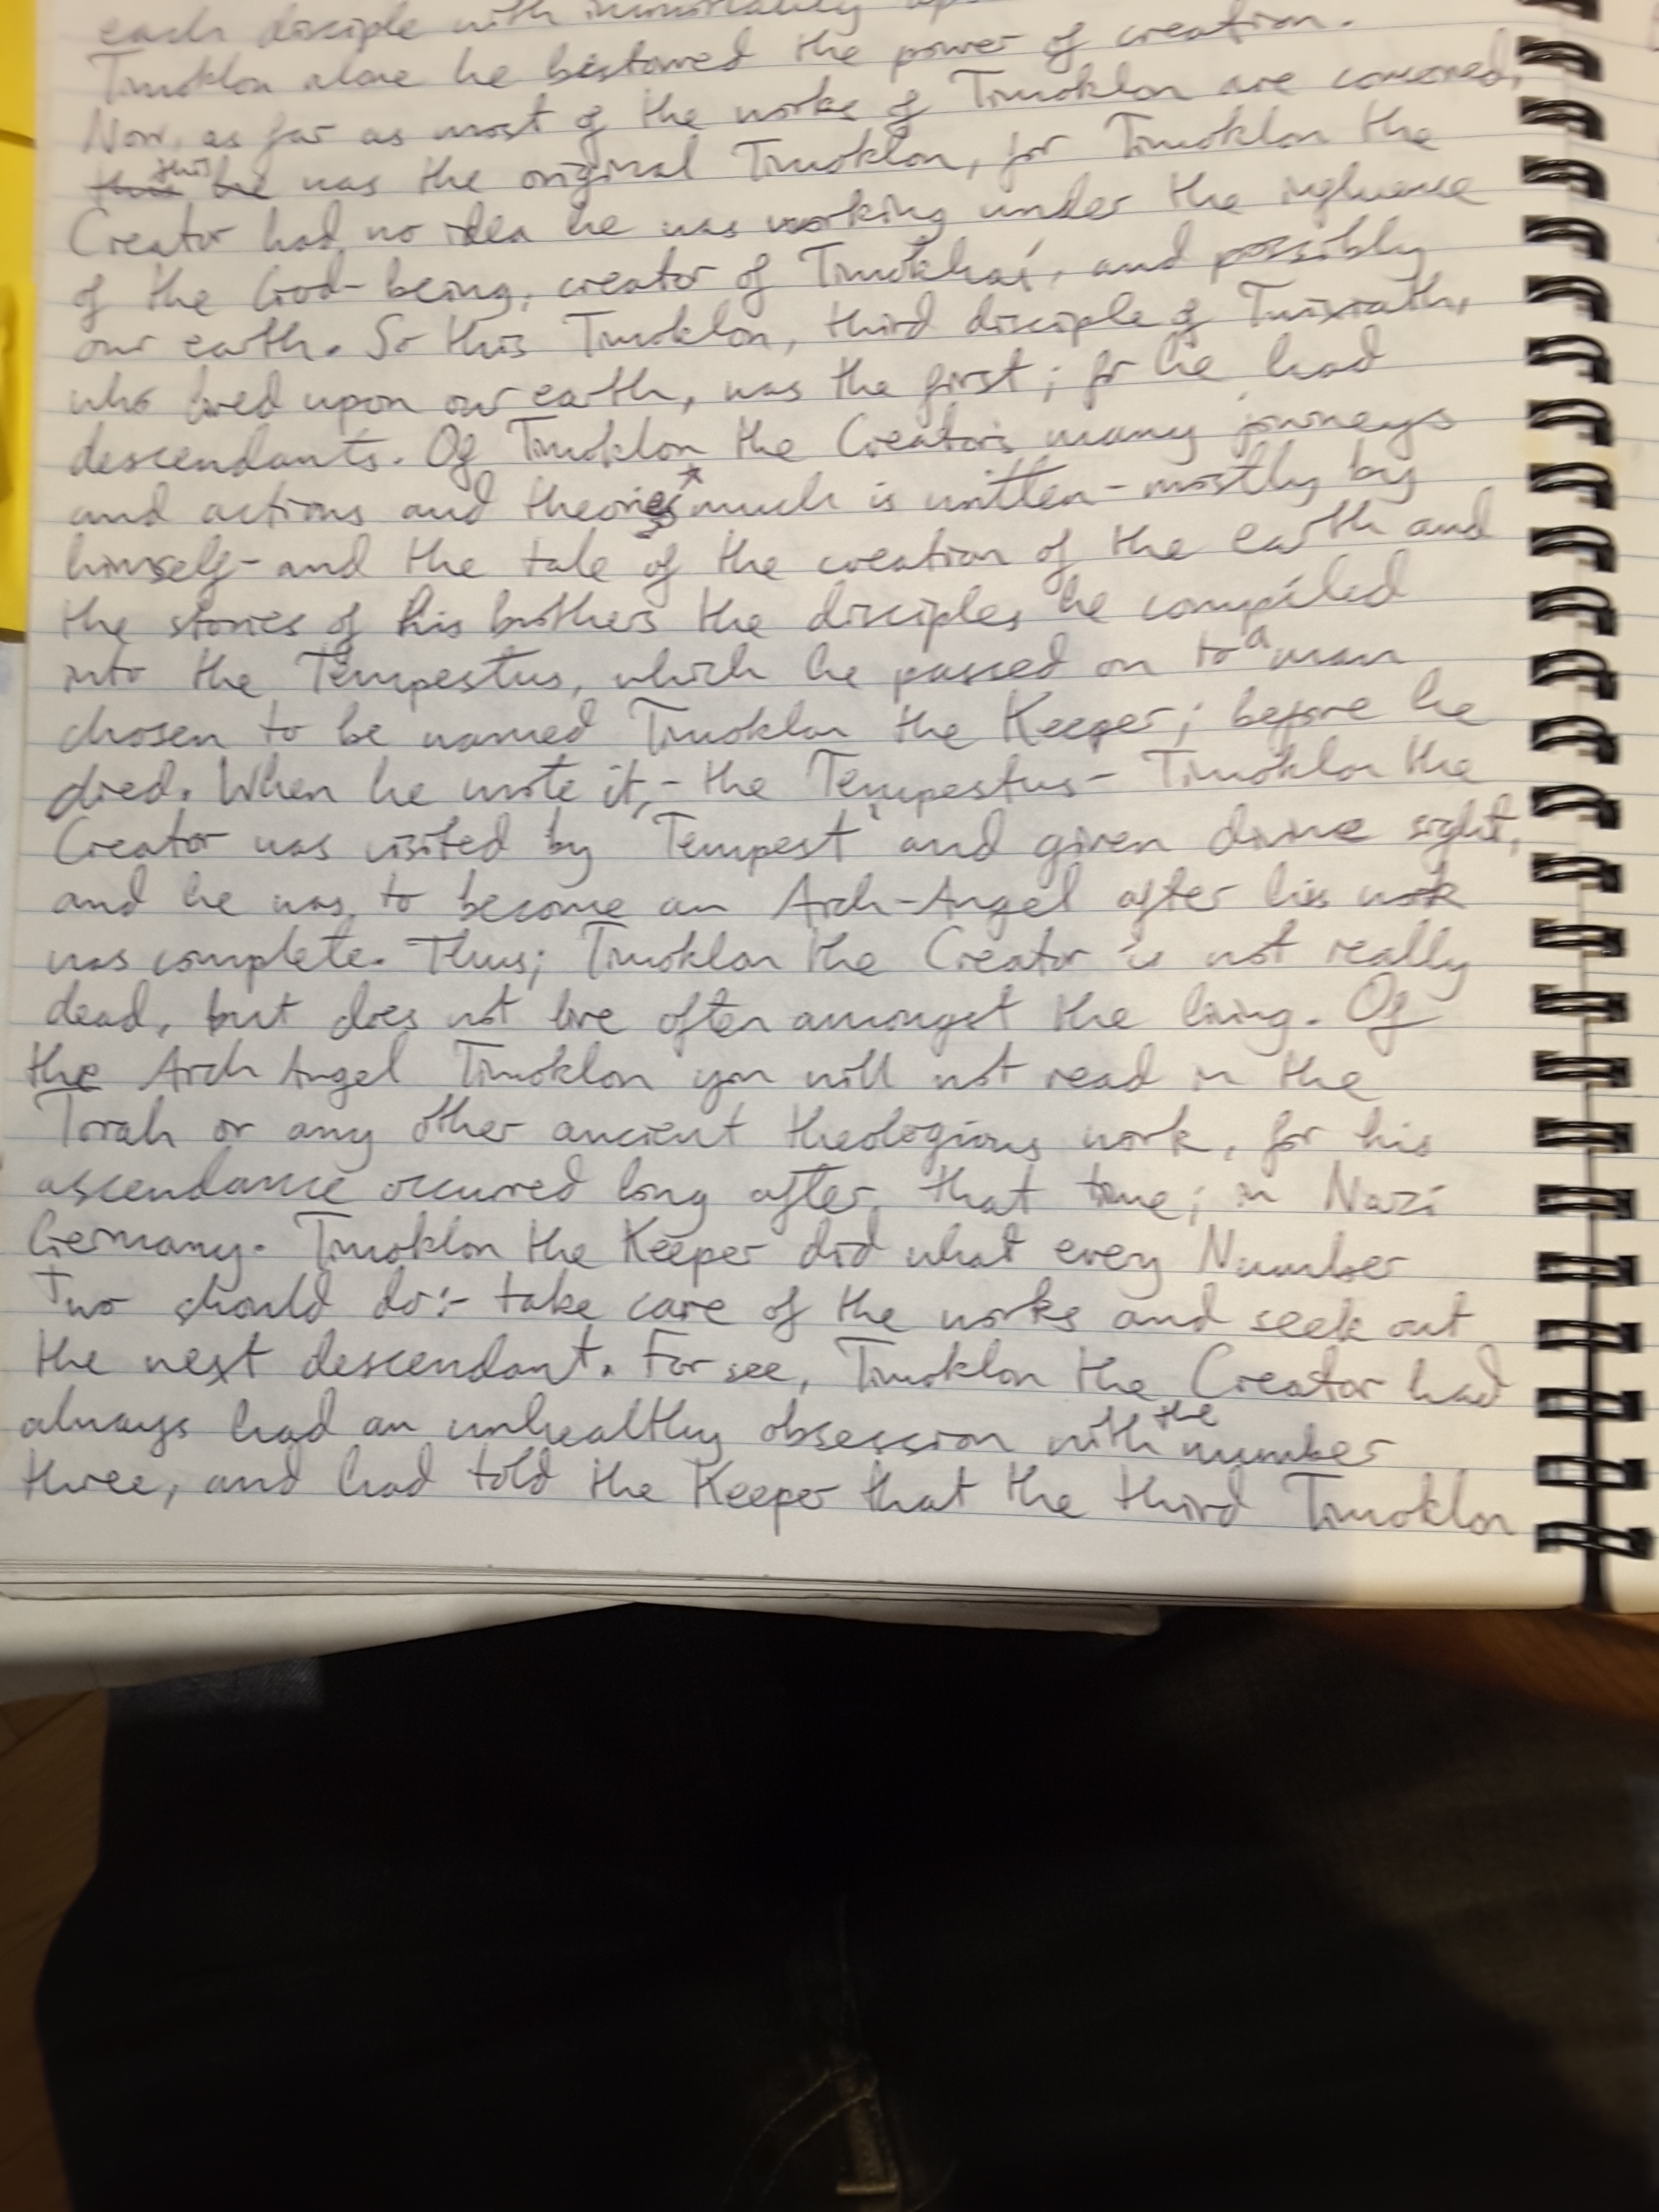 each disciple with immortality
Timoklon alone he bestowed the power of creation.
Now, as far as most of the works of Timoklon are concerned,
this was the original Timoklon, for Timoklon the
Creator had no idea he was working under the influence
of the God-being, creator of Timokhaí, and possibly
our earth. So this Timoklon, third disciple of
who lived upon our earth, was the first; for he had
descendants. Of Timoklon the Creator's many journeys
and actions and theories* much is written - mostly by
himself - and the tale of the creation of the earth and
the stories of his brothers the disciples he compiled
into the Tempestus, which he passed on to a man
chosen to be named Timoklon the Keeper; before he
died. When he wrote it, - the Tempestus - Timoklon the
Creator was visited by 'Tempest' and given divine sight,
and he was to become an Arch-Angel after his work
was complete. Thus; Timoklon the Creator is not really
dead, but does not live often amongst the living. Of
the Arch Angel Timoklon you will not read in the
Torah or any other ancient theologious work, for his
ascendance occurred long after that time; in Nazi
Germany. Timoklon the Keeper did what every Number
Two should do:- take care of the works and seek out
the next descendant. For see, Timoklon the Creator had
always had an unhealthy obsession with the number
three, and had told the Keeper that the third Timoklon